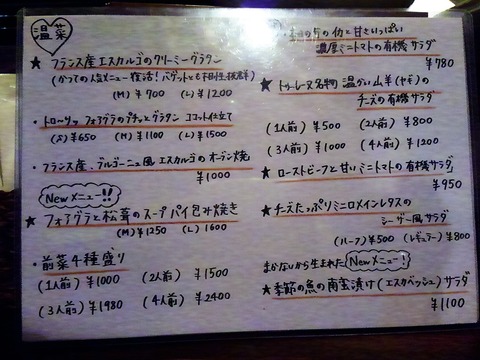 温菜
★ フランス産エスカルゴのクリーミーグラタン
(かつての人気メニュー復活! バゲットとも相性抜群)
(M) ¥700 (L) ¥1200
・トローリッ フォアグラのプチッとグラタン ココット仕立て
(S) ¥650 (M) ¥1100 (L) ¥1500
・フランス産、ブルゴーニュ風エスカルゴのオーブン焼
¥1000
Newメニュー!!
★ フォアグラと松茸のスープパイ包み焼き
(M) ¥1250 (L) 1600
・前菜4種盛り
(1人前) ¥1000 (2人前) ¥1500
(3人前) ¥1980 (4人前) ¥2400
甘さいっぱい
濃厚ミニトマトの有機サラダ
¥780
★ トゥーレーヌ名物 温かい山羊(ヤギ)の
チーズの有機サラダ
(1人前) ¥500 (2人前) ¥800
(3人前) ¥1000 (4人前) ¥1200
★ ローストビーフと甘いミニトマトの有機サラダ
¥950
★ チーズたっぷりミニロメインレタスの
シーザー風サラダ
(ハーフ) ¥500 (レギュラー) ¥800
まかないから生まれた Newメニュー!
★ 季節の魚の南蛮漬け(エスカベッシュ)サラダ
¥1100